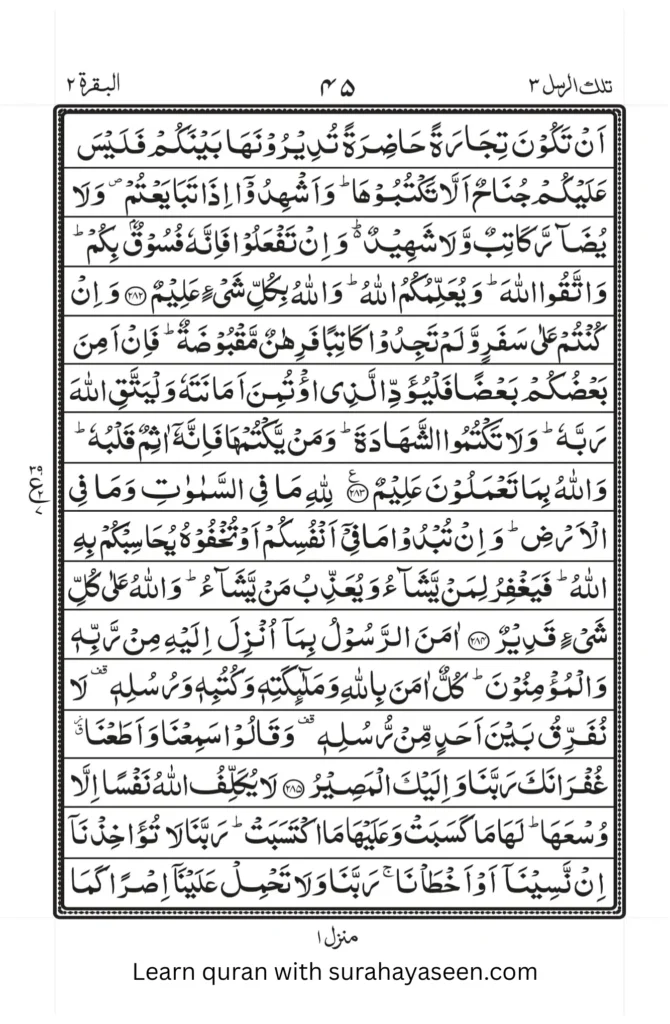 تلك الرسل ٣ ۴۵ البقرة ٢
اَنۡ تَكُوۡنَ تِجَارَةً حَاضِرَةً تُدِيۡرُوۡنَهَا بَيۡنَكُمۡ فَلَيۡسَ
عَلَيۡكُمۡ جُنَاحٌ اَلَّا تَكۡتُبُوۡهَا ؕ وَاَشۡهِدُوۡۤا اِذَا تَبَايَعۡتُمۡ ۖ وَلَا
يُضَآرَّ كَاتِبٌ وَّلَا شَهِيۡدٌ ؕ۬ وَ اِنۡ تَفۡعَلُوۡا فَاِنَّهٗ فُسُوۡقٌۢ بِكُمۡ ؕ
وَاتَّقُوا اللّٰهَ ؕ وَيُعَلِّمُكُمُ اللّٰهُ ؕ وَاللّٰهُ بِكُلِّ شَىۡءٍ عَلِيۡمٌ ﴿۲۸۲﴾ وَ اِنۡ
كُنۡتُمۡ عَلٰى سَفَرٍ وَّلَمۡ تَجِدُوۡا كَاتِبًا فَرِهٰنٌ مَّقۡبُوۡضَةٌ ؕ فَاِنۡ اَمِنَ
بَعۡضُكُمۡ بَعۡضًا فَلۡيُؤَدِّ الَّذِى اؤۡتُمِنَ اَمَانَتَهٗ وَلۡيَتَّقِ اللّٰهَ
رَبَّهٗ ؕ وَلَا تَكۡتُمُوا الشَّهَادَةَ ؕ وَمَنۡ يَّكۡتُمۡهَا فَاِنَّهٗۤ اٰثِمٌ قَلۡبُهٗ ؕ
وَاللّٰهُ بِمَا تَعۡمَلُوۡنَ عَلِيۡمٌ ﴿۲۸۳﴾ ع لِلّٰهِ مَا فِى السَّمٰوٰتِ وَمَا فِى
الۡاَرۡضِ ؕ وَ اِنۡ تُبۡدُوۡا مَا فِىۡۤ اَنۡفُسِكُمۡ اَوۡ تُخۡفُوۡهُ يُحَاسِبۡكُمۡ بِهِ
اللّٰهُ ؕ فَيَغۡفِرُ لِمَنۡ يَّشَآءُ وَيُعَذِّبُ مَنۡ يَّشَآءُ ؕ وَاللّٰهُ عَلٰى كُلِّ
شَىۡءٍ قَدِيۡرٌ ﴿۲۸۴﴾ اٰمَنَ الرَّسُوۡلُ بِمَاۤ اُنۡزِلَ اِلَيۡهِ مِنۡ رَّبِّهٖ
وَالۡمُؤۡمِنُوۡنَ ؕ كُلٌّ اٰمَنَ بِاللّٰهِ وَمَلٰٓئِكَتِهٖ وَكُتُبِهٖ وَرُسُلِهٖ قف لَا
نُفَرِّقُ بَيۡنَ اَحَدٍ مِّنۡ رُّسُلِهٖ قف وَقَالُوۡا سَمِعۡنَا وَاَطَعۡنَا
غُفۡرَانَكَ رَبَّنَا وَاِلَيۡكَ الۡمَصِيۡرُ ﴿۲۸۵﴾ لَا يُكَلِّفُ اللّٰهُ نَفۡسًا اِلَّا
وُسۡعَهَا ؕ لَهَا مَا كَسَبَتۡ وَعَلَيۡهَا مَا اكۡتَسَبَتۡ ؕ رَبَّنَا لَا تُؤَاخِذۡنَاۤ
اِنۡ نَّسِيۡنَاۤ اَوۡ اَخۡطَاۡنَا ۚ رَبَّنَا وَلَا تَحۡمِلۡ عَلَيۡنَاۤ اِصۡرًا كَمَا
منزل ١
Learn quran with surahayaseen.com